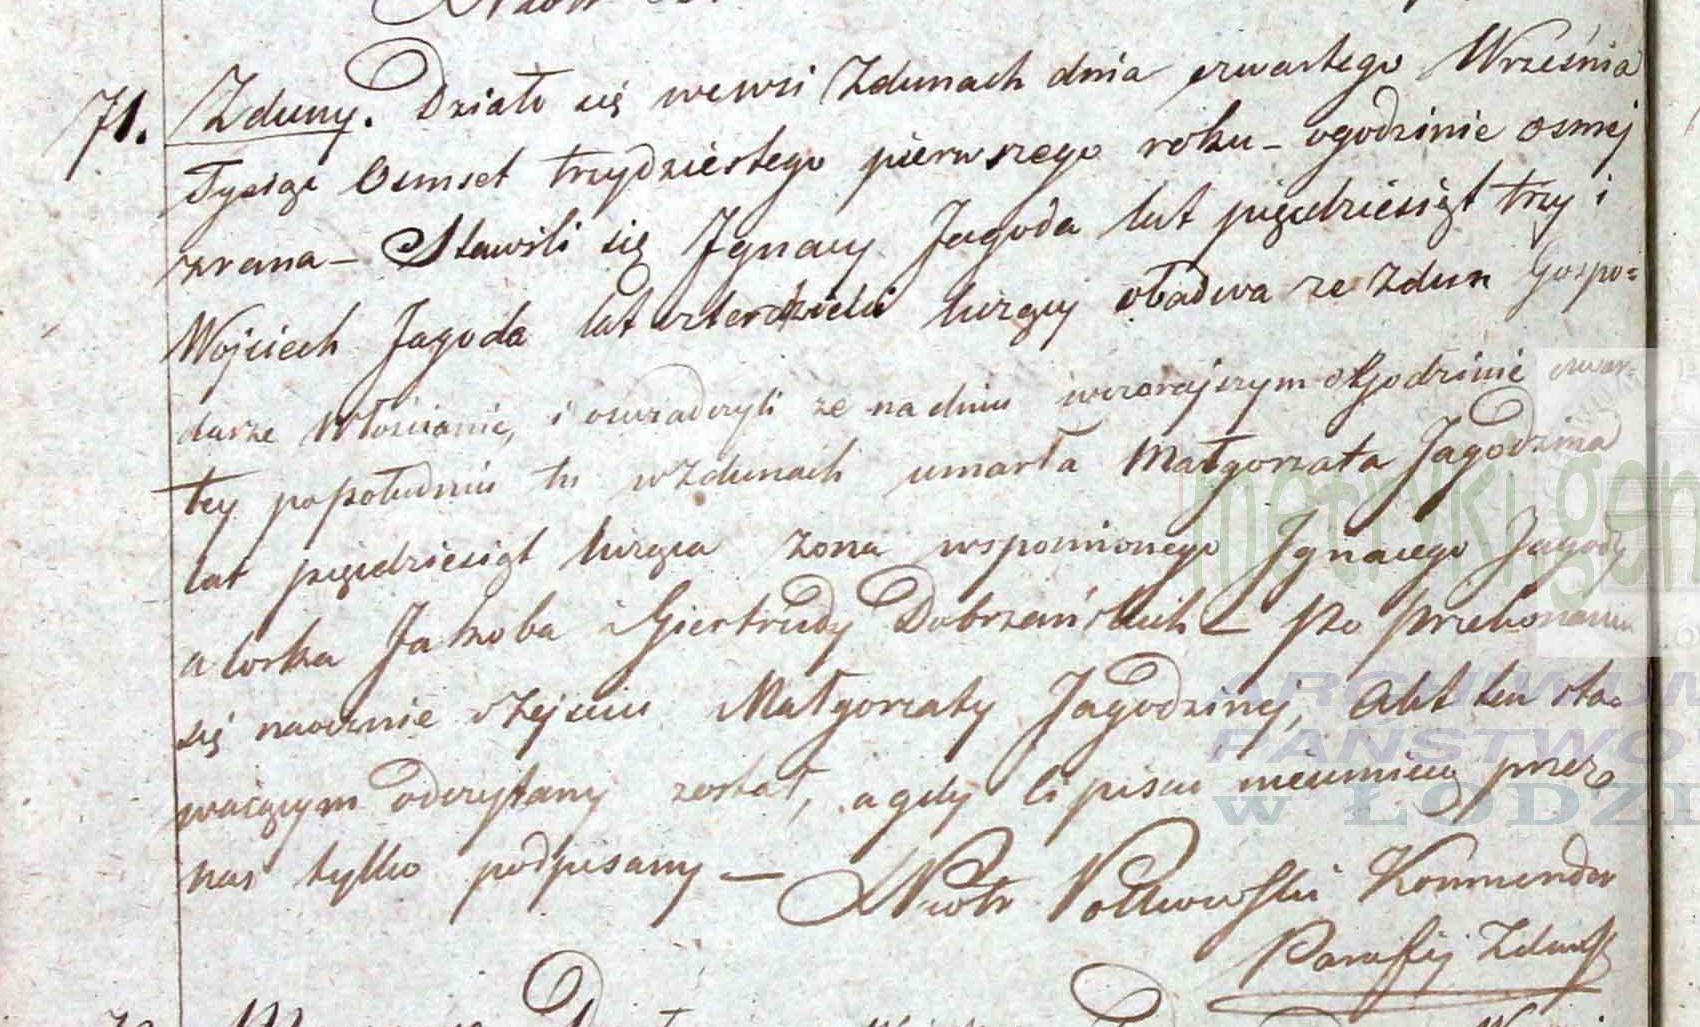 71. Zduny. Działo się we wsi Zdunach dnia czwartego Września
Tysiąc Osmset trzydziestego pierwszego roku – ogodzinie osmej
zrana – Stawili się Jgnacy Jagoda lat pięcdziesiąt trzy i
Woyciech Jagoda lat czterdzieści liczący obadwa ze Zdun Gospo=
darze Włościanie, i oswiadczyli ze na dniu wczorajszym o Godzinie czwar=
tey popołudniu tu w Zdunach umarła Małgorzata Jagodzina
lat pięcdziesiąt licząca zona wspomionego Jgnacego Jagody
a corka Jakoba i Giertrudy Dobrzańskich – Po przekonaniu
się naocznie o Zejściu Małgorzaty Jagodzinej, Akt ten sta=
waiącym odczytany został, a gdy ci pisac nieumieią przez
nas tylko podpisany –
X Piotr Kommendarz
Parafij
metryki.gen
ARCHIWUM
PAŃSTWO
W ŁODZI